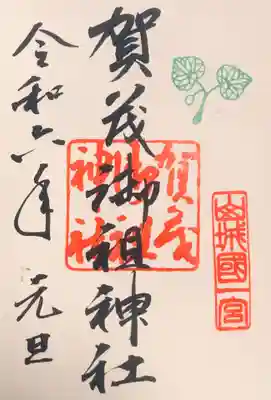 山城國一宮
賀茂御祖神社
賀茂御祖神社
令和六年 元旦